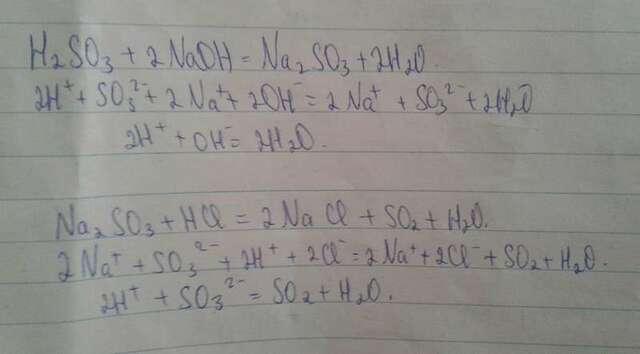 H₂SO₃ + 2NaOH = Na₂SO₃ + 2H₂O.
2H⁺ + SO₃²⁻ + 2Na⁺ + 2OH⁻ = 2Na⁺ + SO₃²⁻ + 2H₂O
2H⁺ + OH⁻ = 2H₂O.
Na₂SO₃ + HCl = 2NaCl + SO₂ + H₂O.
2Na⁺ + SO₃²⁻ + 2H⁺ + 2Cl⁻ = 2Na⁺ + 2Cl⁻ + SO₂ + H₂O.
2H⁺ + SO₃²⁻ = SO₂ + H₂O.